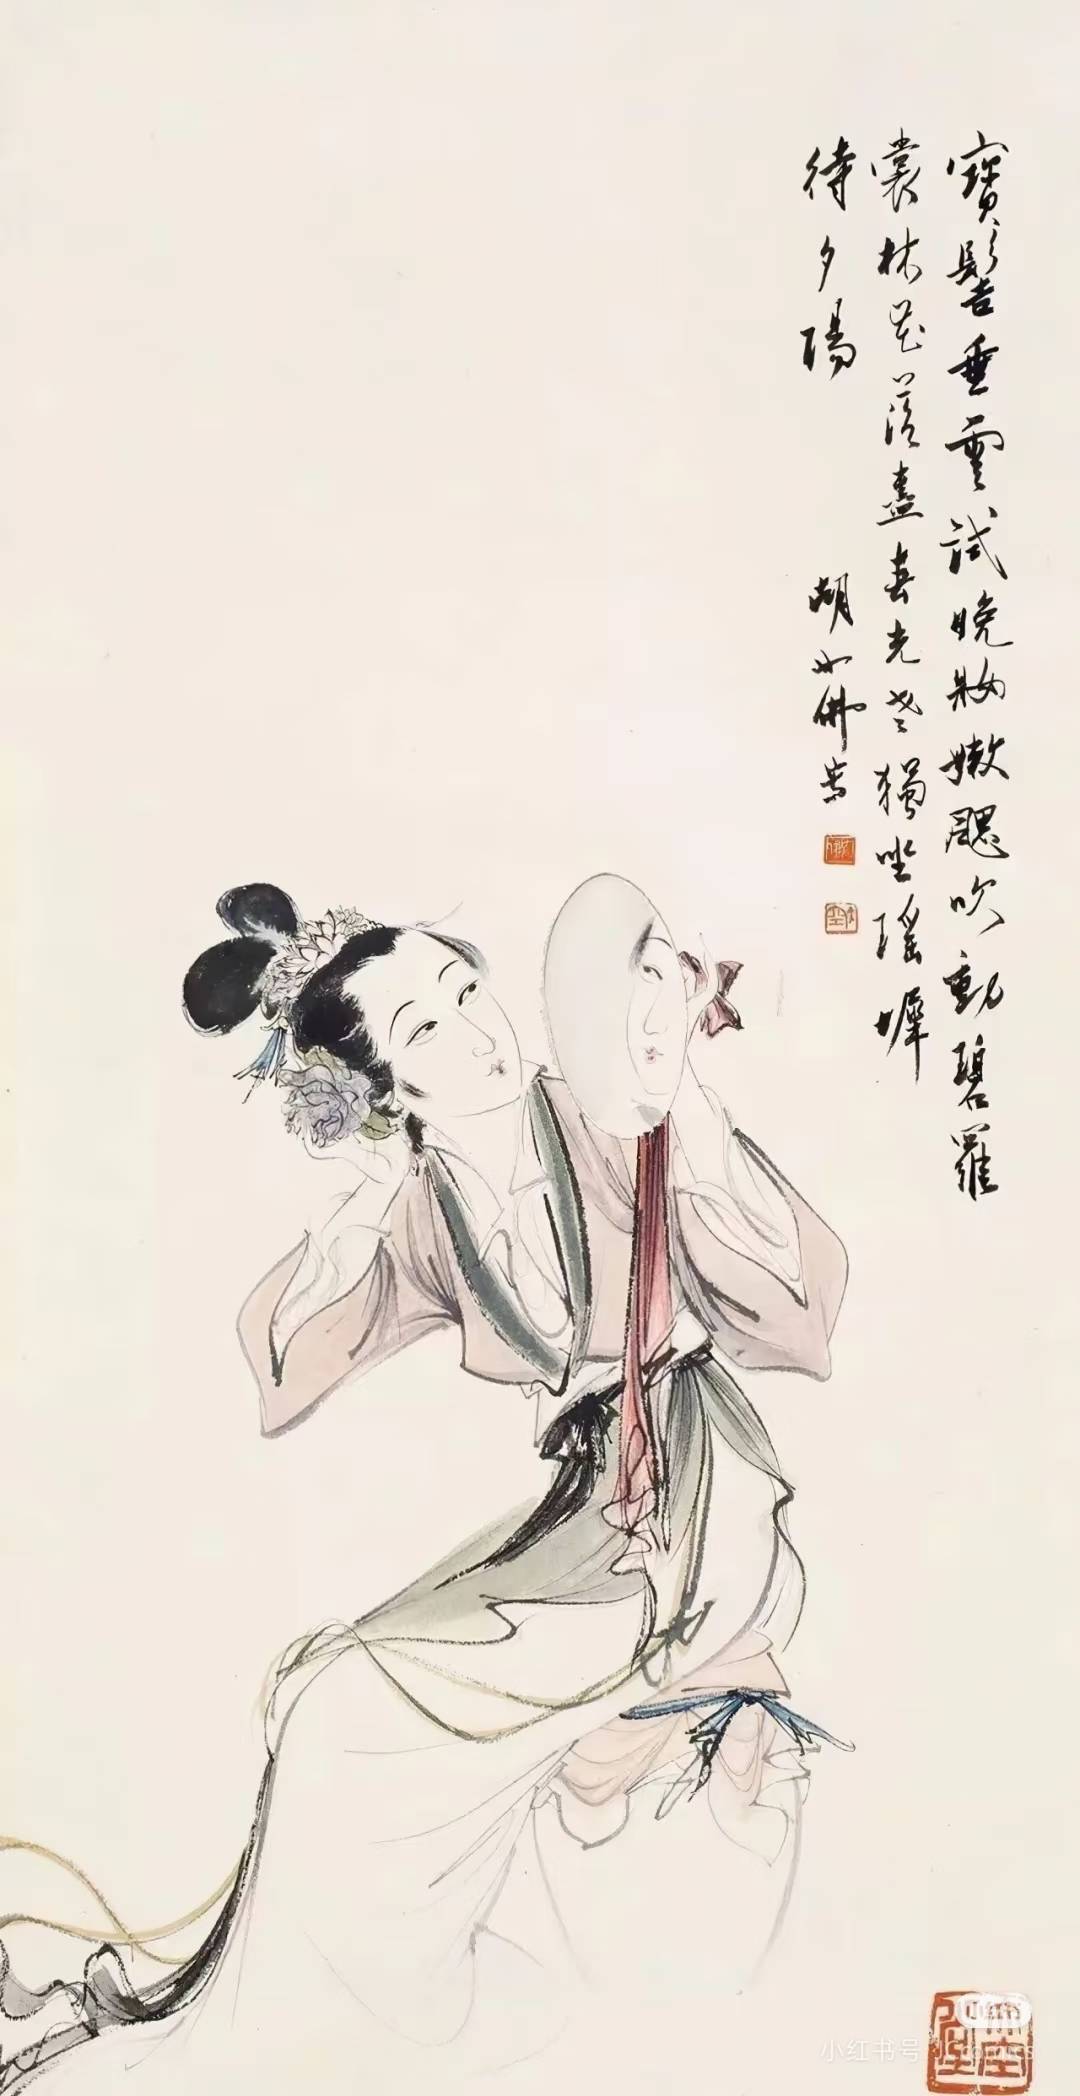 寶髻垂雲試晚妝嫩颸吹動碧羅
裳林花落盡春光老獨坐瑤墀
待夕陽
胡也佛寫
小红书
小红书号